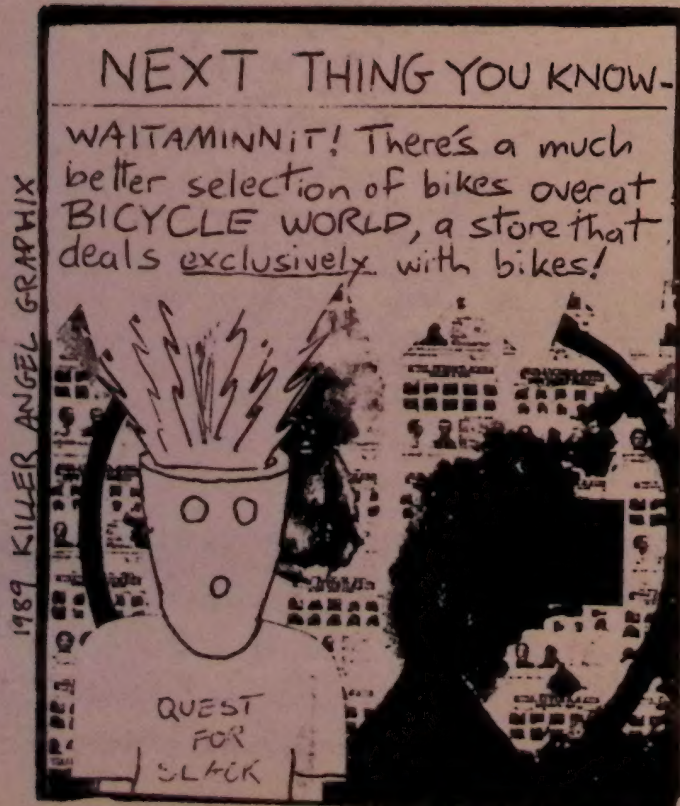 NEXT THING YOU KNOW-
WAITAMINNIT! There's a much
better selection of bikes over at
BICYCLE WORLD, a store that
deals exclusively with bikes!
QUEST
FOR
SLACK
1989 KILLER ANGEL GRAPHIX